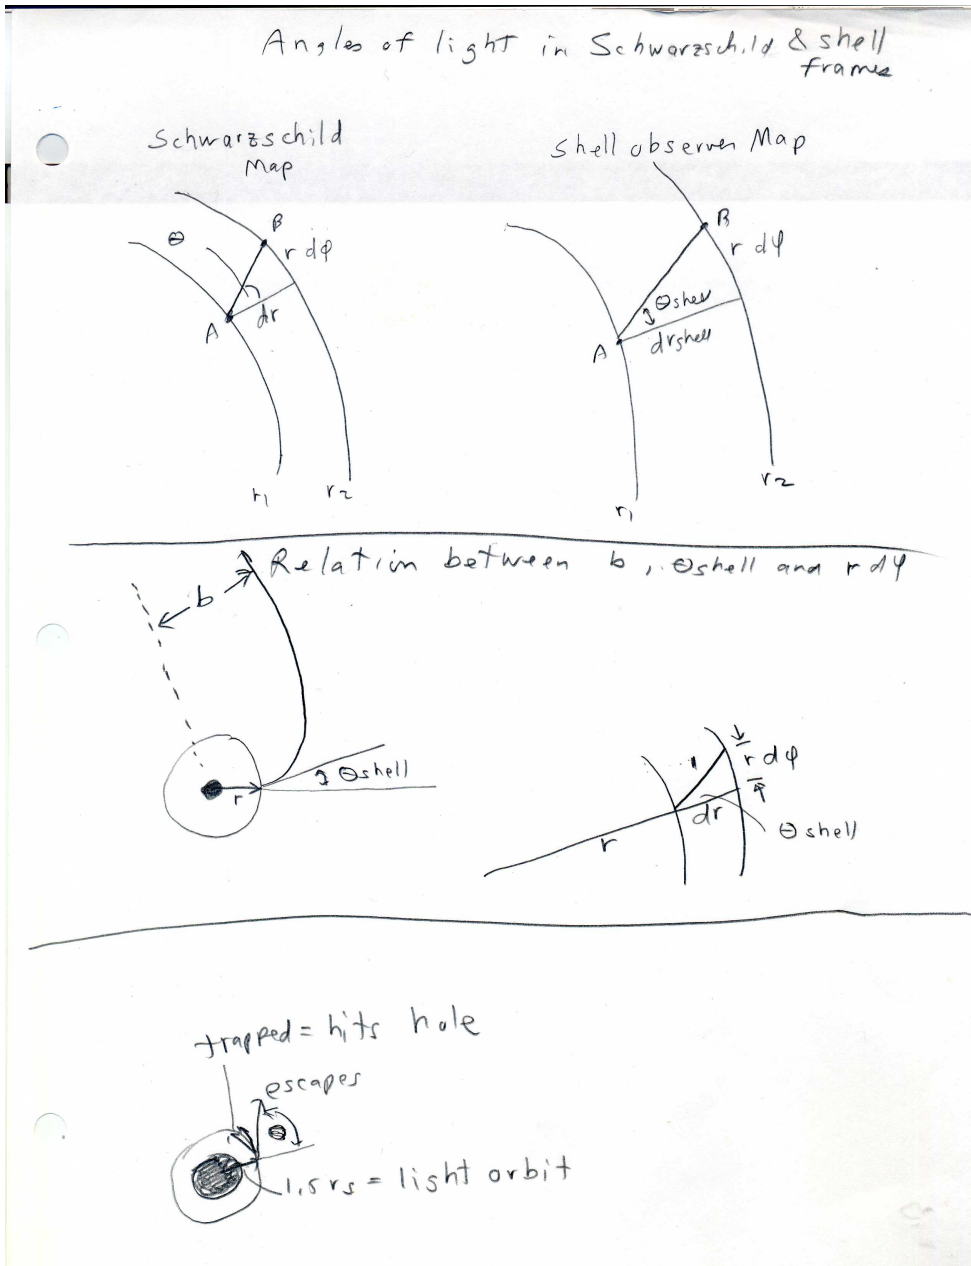 Angles of light in Schwarzschild & shell
frames
Schwarzschild
Map
Shell observer Map
θ
B
r dφ
A
dr
r1
r2
B
r dφ
θshell
A
drshell
r1
r2
Relation between b, θshell and r dφ
b
r
θshell
1
r dφ
dr
r
θ shell
trapped = hits hole
escapes
θ
1.5 rs = light orbit